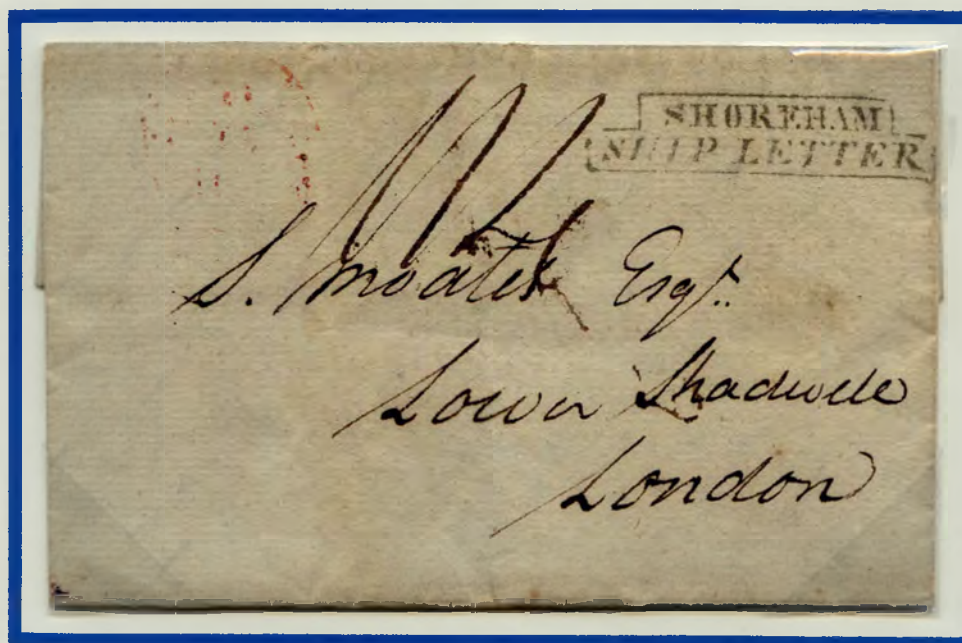 SHOREHAM
SHIP LETTER
S. Moates Esqr.
Lower Shadwell
London